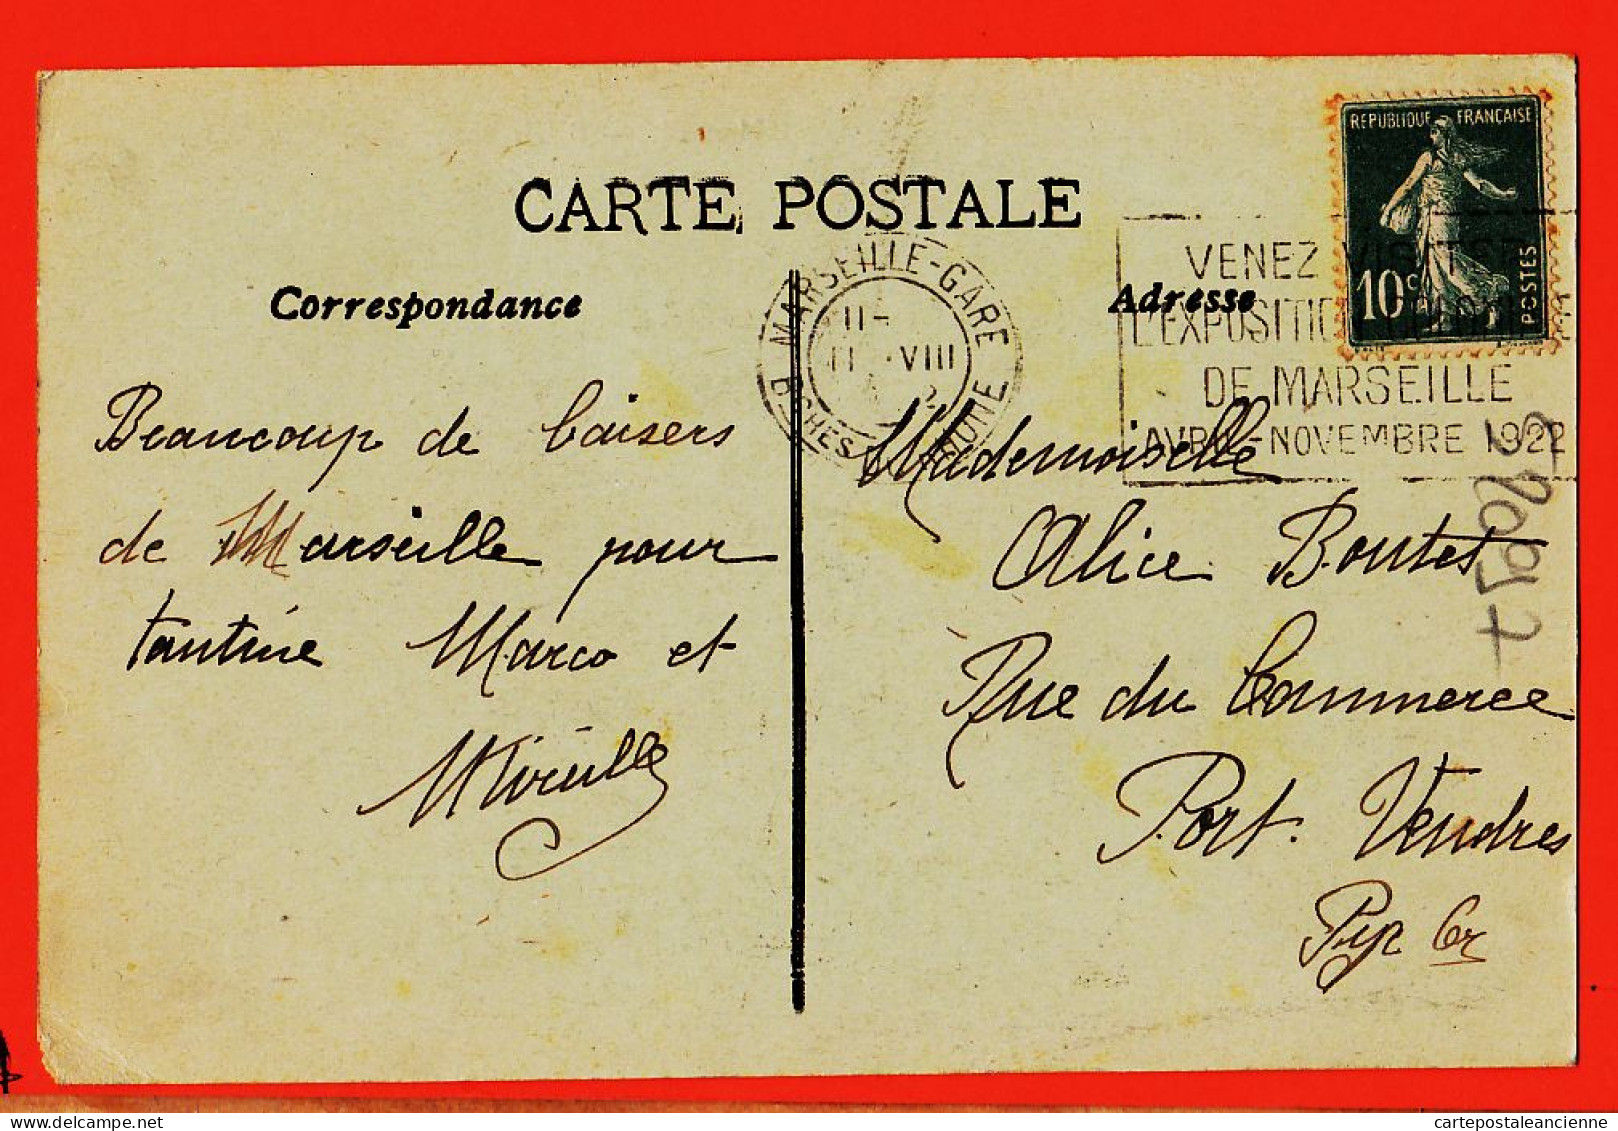 CARTE POSTALE
Correspondance
Beaucoup de baisers
de Marseille pour
tantine Marco et
Mireille
MARSEILLE-GARE
VIII
REPUBLIQUE FRANÇAISE
10c
POSTES
VENEZ VISITER
L'EXPOSITION COLONIALE
DE MARSEILLE
AVRIL-NOVEMBRE 1922
Adresse
Mademoiselle
Alice Boutet
Rue du Commerce
Port. Vendres
Pyr Or
cartepostaleancienne